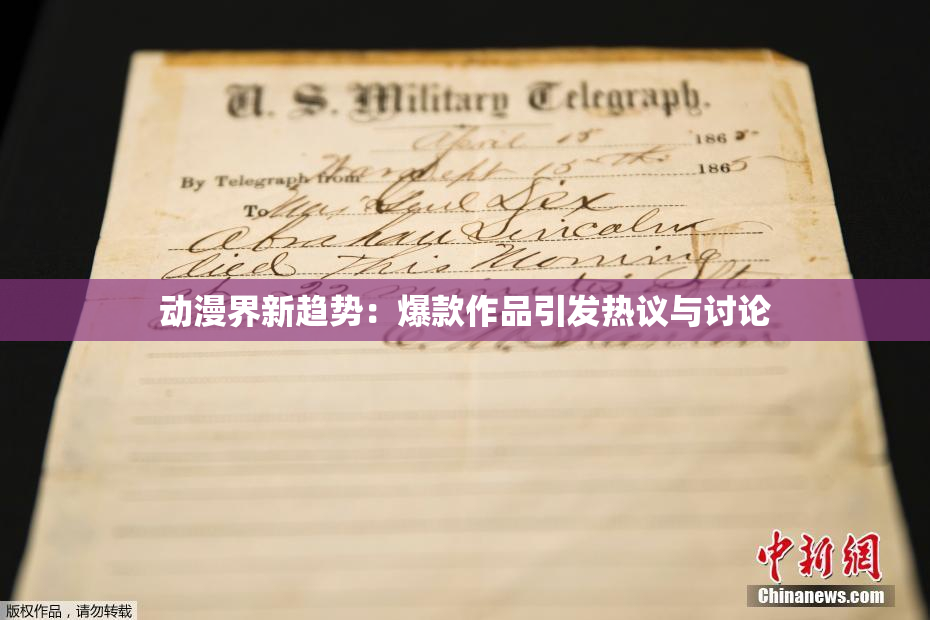 U. S. Military Telegraph.
April 15 1865
By Telegraph from War Dept 15th 1865
To Maj Genl Dix
Abraham Lincoln
died This Morning
at 22 minutes after
动漫界新趋势：爆款作品引发热议与讨论
Stanton
中新网
Chinanews.com
版权作品，请勿转载